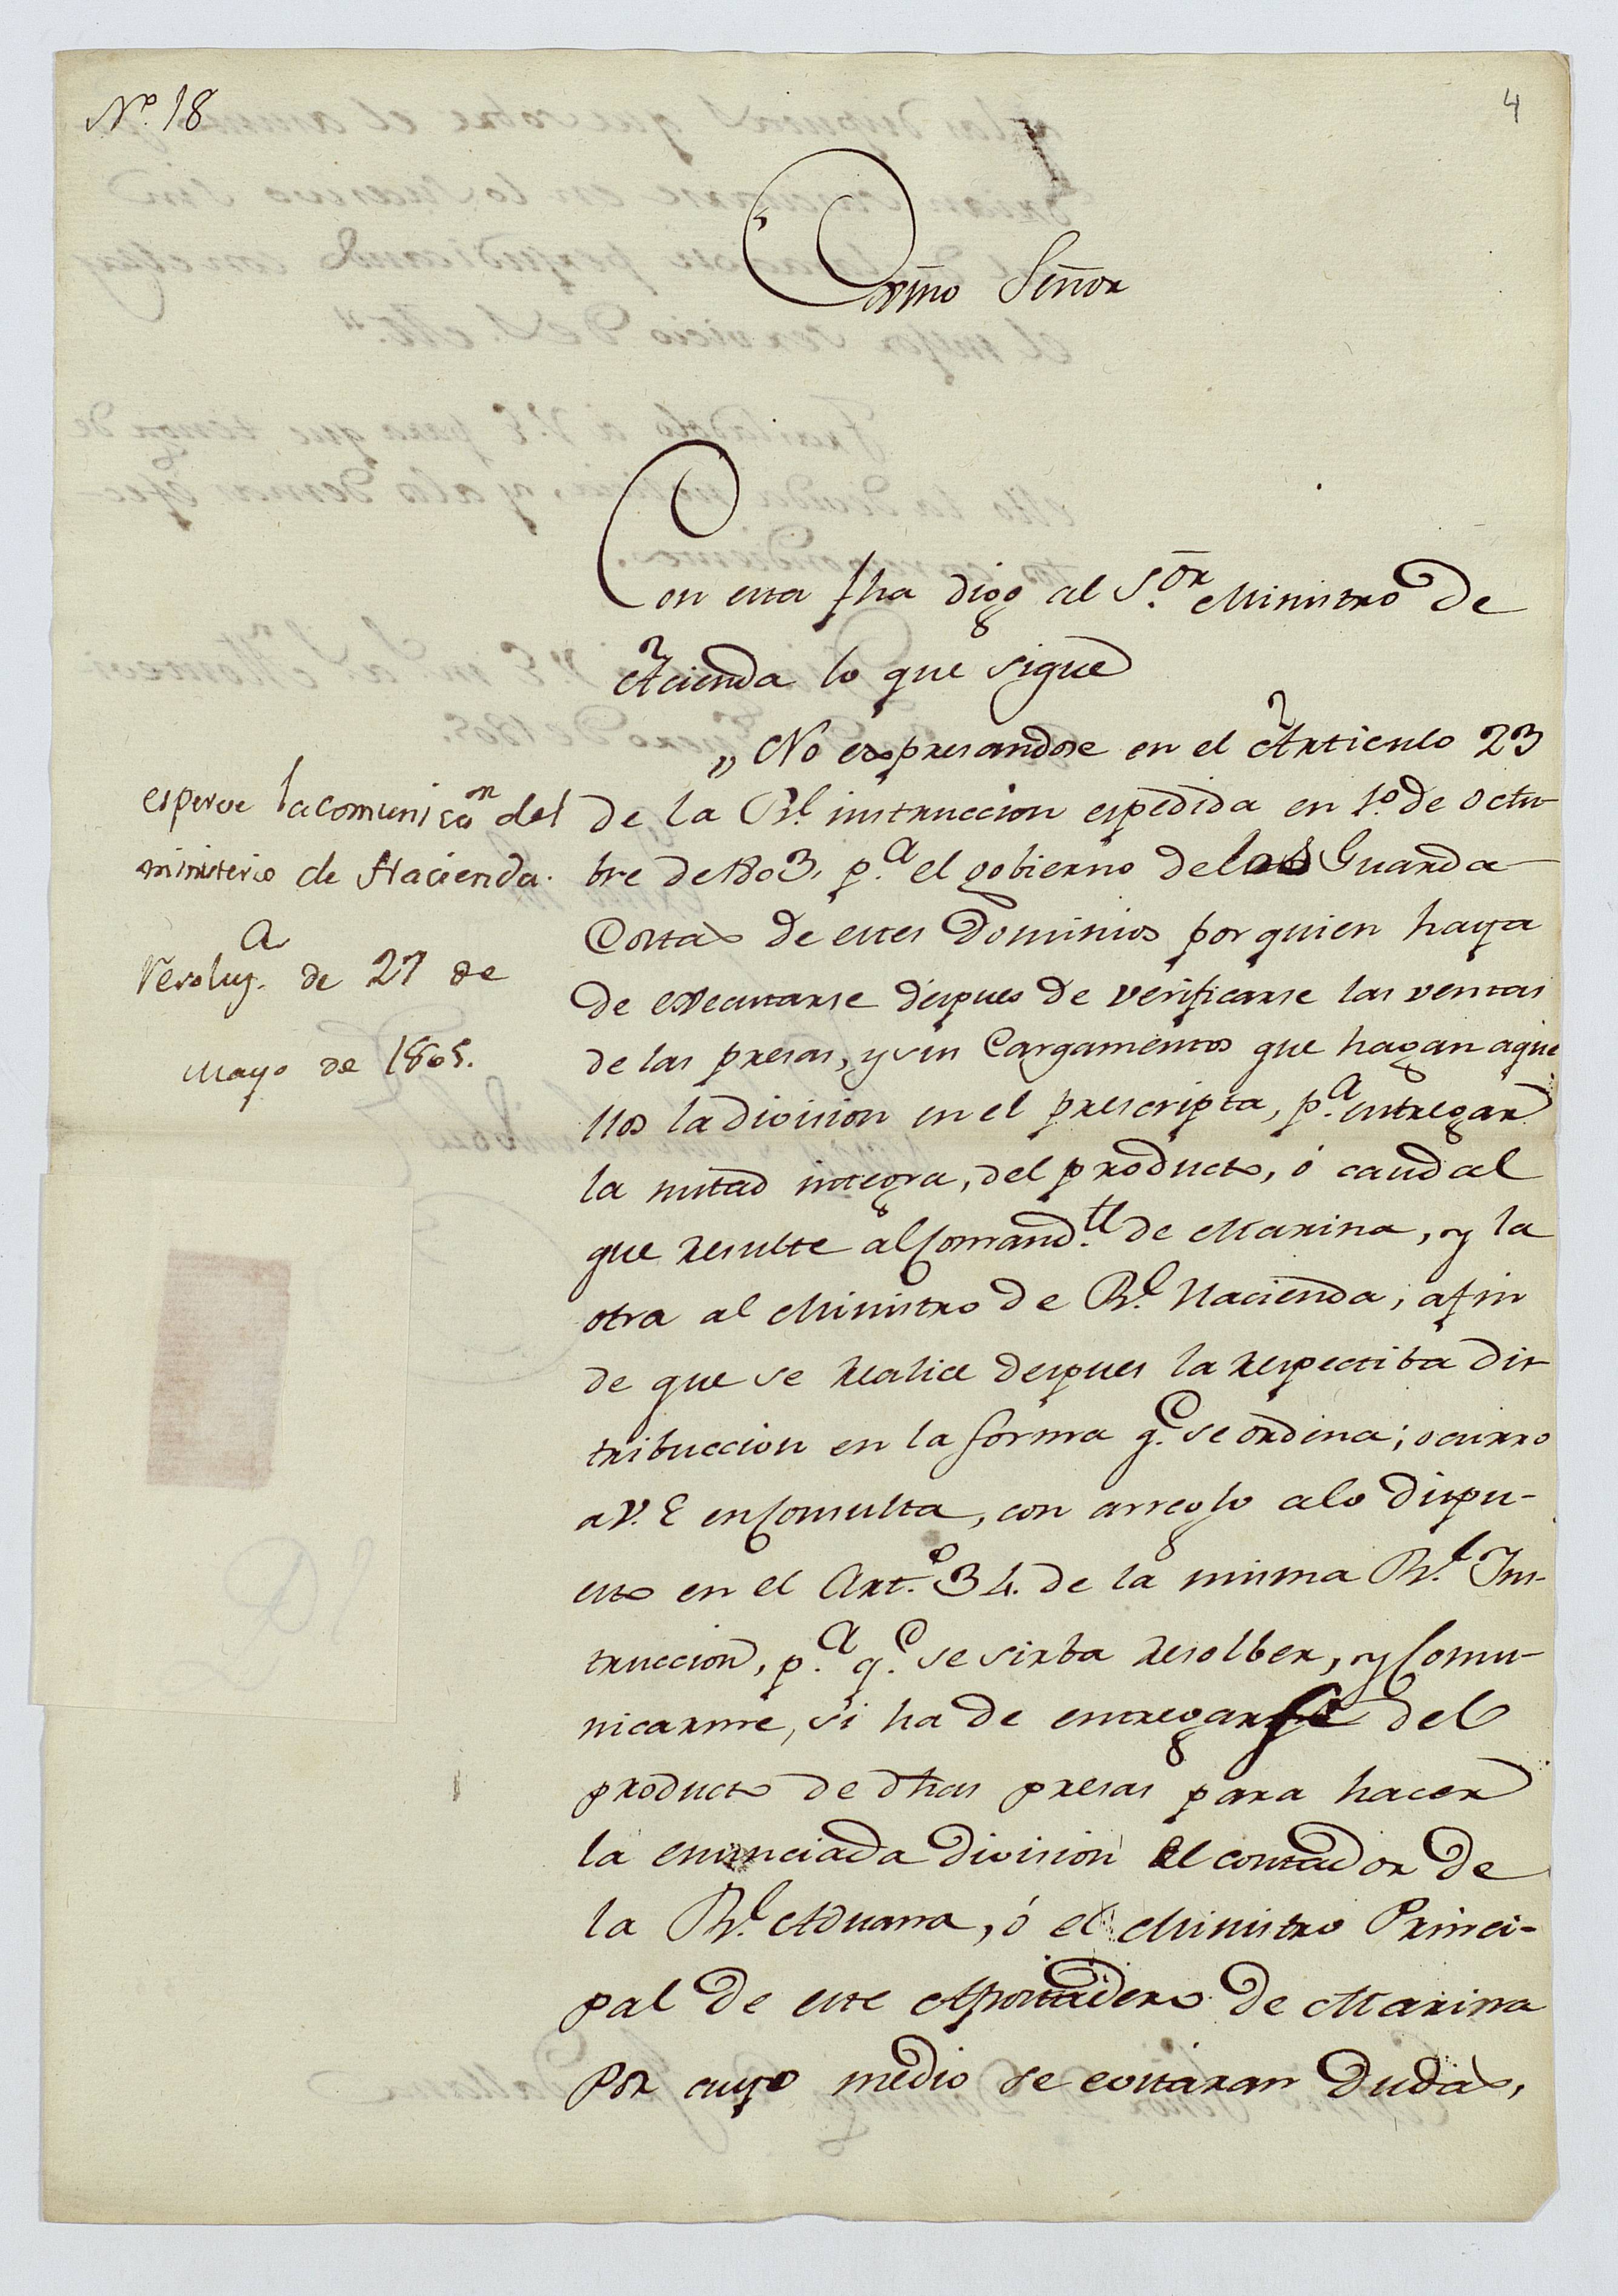 N.º 18
4
Exmo Señor
Con esta fha digo al S.or Ministro de
Acienda lo que sigue
„ No expresandose en el Articulo 23
de la Rl. instruccion espedida en 1.º de octu-
bre de 1803, p.a el gobierno de los Guarda
Costas de estos Dominios por quien haya
de executarse despues de verificarse las ventas
de las presas, y sus Cargamentos que hagan aque
llos la division en el prescripta, p.a entregar
la mitad integra, del producto, ó caudal
que resulte al Comand.te de Marina, y la
otra al Ministro de Rl. Hacienda, afin
de que se realice despues la respectiba dis-
tribuccion en la forma q.e se ordena; ocurro
a V. E en Consulta, con arreglo alo dispu-
esto en el Art.o 34. de la misma Rl. Ins-
truccion, p.a q.e se sirba resolber, y Comu-
nicarme, si ha de entregarse del
producto de dhas presas para hacer
la enunciada division el contador de
la Rl. Aduana, ó el Ministro Princi-
pal de este Apostadero de Marina
por cuyo medio se evitaran Dudas,
espere la comunicaon del
ministerio de Hacienda.
a
resoluz. de 27 de
Mayo de 1805.